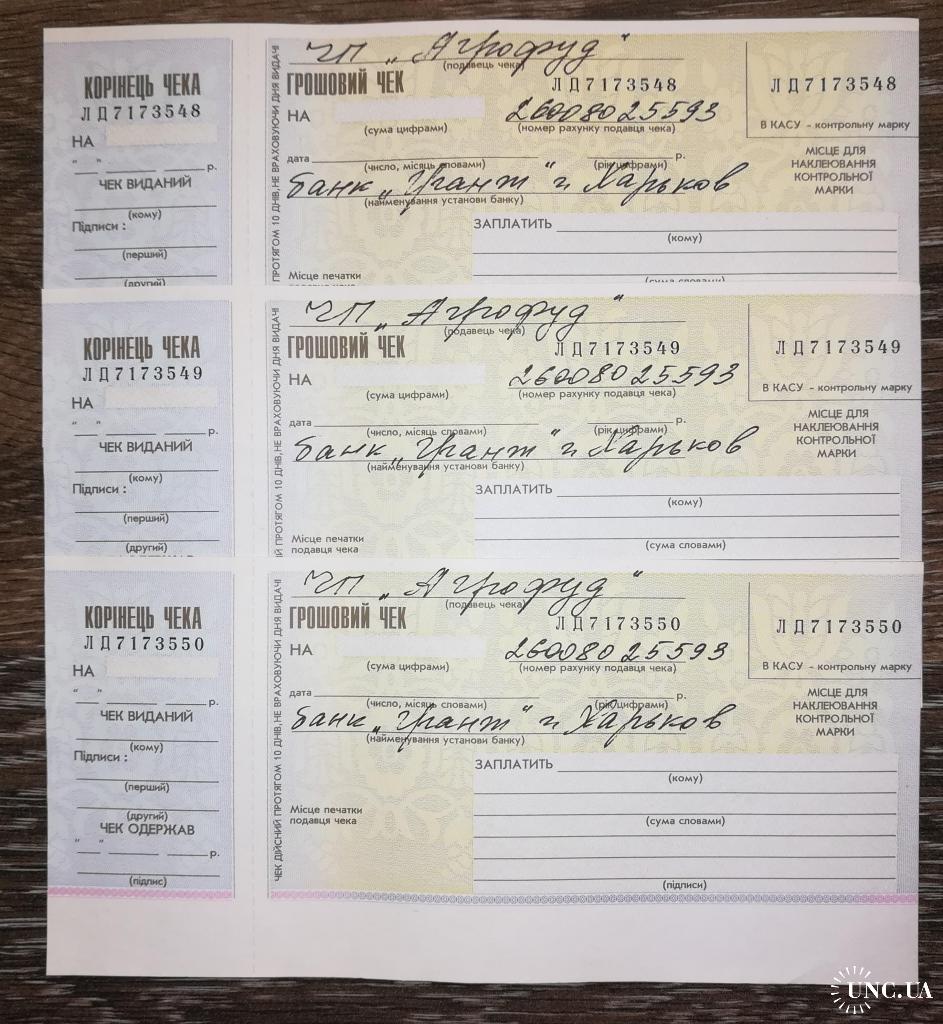 КОРІНЕЦЬ ЧЕКА
ЛД7173548
НА
" " р.
ЧЕК ВИДАНИЙ
(кому)
Підписи :
(перший)
(другий)
ПРОТЯГОМ 10 ДНІВ, НЕ ВРАХОВУЮЧИ ДНЯ ВИДАЧІ
ЧП „Агрофуд"
(подавець чека)
ГРОШОВИЙ ЧЕК
ЛД7173548
НА
26008025593
(сума цифрами)
(номер рахунку подавця чека)
дата р.
(число, місяць словами)
(рік цифрами)
банк „Грант" г. Харьков
(найменування установи банку)
ЗАПЛАТИТЬ
(кому)
Місце печатки
подавця чека
(сума словами)
ЛД7173548
В КАСУ - контрольну марку
МІСЦЕ ДЛЯ
НАКЛЕЮВАННЯ
КОНТРОЛЬНОЇ
МАРКИ
КОРІНЕЦЬ ЧЕКА
ЛД7173549
НА
" " р.
ЧЕК ВИДАНИЙ
(кому)
Підписи :
(перший)
(другий)
ИЙ ПРОТЯГОМ 10 ДНІВ, НЕ ВРАХОВУЮЧИ ДНЯ ВИДАЧІ
ЧП „Агрофуд"
(подавець чека)
ГРОШОВИЙ ЧЕК
ЛД7173549
НА
26008025593
(сума цифрами)
(номер рахунку подавця чека)
дата р.
(число, місяць словами)
(рік цифрами)
банк „Грант" г. Харьков
(найменування установи банку)
ЗАПЛАТИТЬ
(кому)
Місце печатки
подавця чека
(сума словами)
ЛД7173549
В КАСУ - контрольну марку
МІСЦЕ ДЛЯ
НАКЛЕЮВАННЯ
КОНТРОЛЬНОЇ
МАРКИ
КОРІНЕЦЬ ЧЕКА
ЛД7173550
НА
" " р.
ЧЕК ВИДАНИЙ
(кому)
Підписи :
(перший)
(другий)
ЧЕК ОДЕРЖАВ
" " р.
(підпис)
ЧЕК ДІЙСНИЙ ПРОТЯГОМ 10 ДНІВ, НЕ ВРАХОВУЮЧИ ДНЯ ВИДАЧІ
ЧП „Агрофуд"
(подавець чека)
ГРОШОВИЙ ЧЕК
ЛД7173550
НА
26008025593
(сума цифрами)
(номер рахунку подавця чека)
дата р.
(число, місяць словами)
(рік цифрами)
банк „Грант" г. Харьков
(найменування установи банку)
ЗАПЛАТИТЬ
(кому)
Місце печатки
подавця чека
(сума словами)
(підписи)
ЛД7173550
В КАСУ - контрольну марку
МІСЦЕ ДЛЯ
НАКЛЕЮВАННЯ
КОНТРОЛЬНОЇ
МАРКИ
UNC.UA